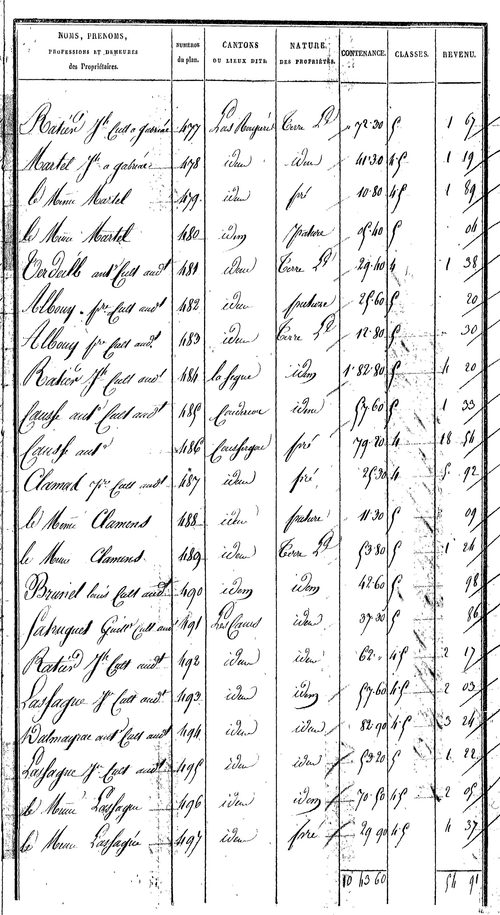 NOMS, PRENOMS, PROFESSIONS ET DEMEURES des Propriétaires. NUMEROS du plan. CANTONS OU LIEUX DITS. NATURE DES PROPRIÉTÉS. CONTENANCE. CLASSES. REVENU.
Ratier Jh Cult a 477 Terre Ld 72.30 5 1 67
Martel Jh a 478 idem idem 41.30 45 1 19
le Même Martel 479 idem pré 10.80 45 1 89
le Même Martel 480 idem pature 05.40 5 04
ant. Cult audt 481 idem Terre Ld 29.40 4 1 38
Albouy Cult audt 482 idem pature 25.60 5 20
Albouy Cult audt 483 idem Terre Ld 12.80 5 30
Ratier Jh Cult audt 484 idem 1.82.80 5 4 20
Causse ant. Cult audt 485 idem 57.60 5 1 33
Causse ant. 486 pré 79.20 4 18 54
Cult audt 487 idem pré 25.30 4 5 92
le Même Clamens 488 idem pature 11.30 5 09
le Même Clamens 489 idem Terre Ld 53.80 5 1 24
Brunel louis Cult audt 490 idem idem 42.60 5 98
Cult audt 491 idem 37.30 5 86
Ratier Jh Cult audt 492 idem idem 62 45 2 17
Lassagne Jh Cult audt 493 idem idem 57.60 45 2 03
Cult audt 494 idem idem 82.90 45 3 24
Lassagne Jh Cult audt 495 idem idem 53.20 5 1 22
le Même Lassagne 496 idem idem 70.50 45 2 05
le Même Lassagne 497 idem pré 29.90 45 4 37
10 43 60 54 91